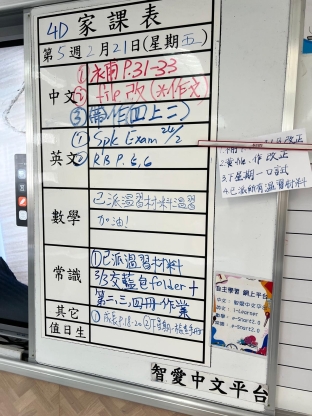 4D 家課表
第5週2月21日(星期五)
中文
① 永南 P.31-33
② file 改 (作文)
③ 帶作(四上二)
英文
① Spk Exam 24/2
② RB P. 5, 6
數學
已派溫習材料溫習
加油!
常識
①已派溫習材料
3/3交藍色folder+
第二,三,四冊作業
其它
① 成長 P.18-20
值日生
改正
作改正
3.下星期一口試
4.已派所有溫習材料
自主學習 網上平台
中文:智愛中文平台
英文:i-Learner
數學:e-Smart2.0
常識:e-Smart2.0
智愛中文平台